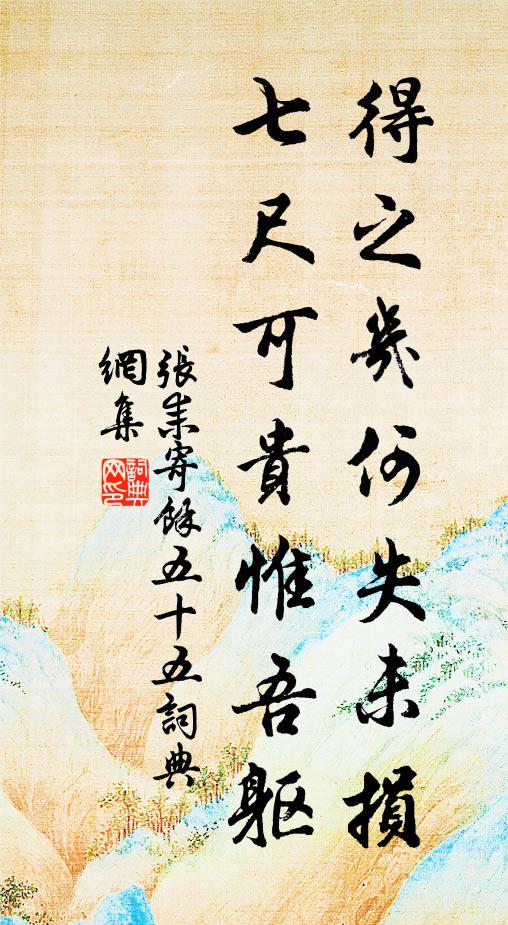 得之幾何失未損
七尺可貴惟吾軀
張耒寄餘五十五詞典
網集
詞典
网印